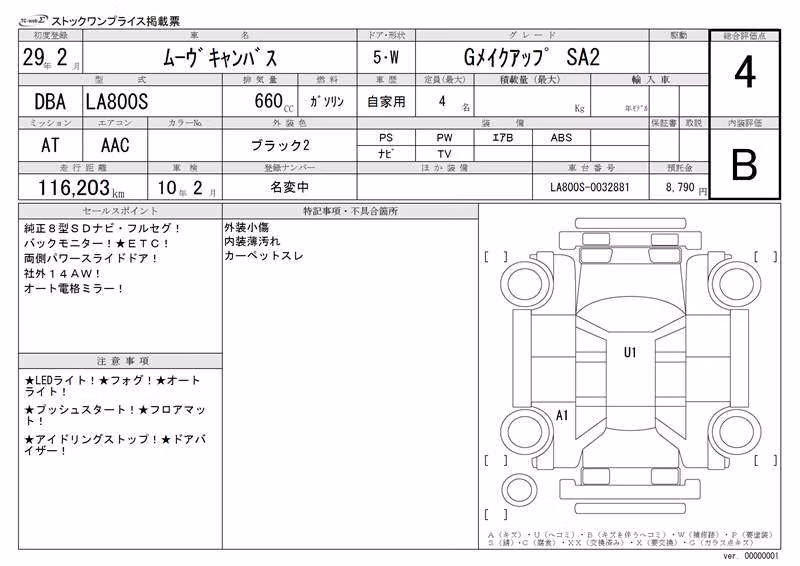 TC-webΣ ストックワンプライス掲載票
初度登録 車名 ドア・形状 グレード 駆動 総合評価点
29年 2月 ムーヴキャンバス 5・W Gメイクアップ SA2 4
型式 排気量 燃料 車歴 定員(最大) 積載量(最大) 輸入車
DBA LA800S 660CC ガソリン 自家用 4名 Kg 年モデル
ミッション エアコン カラーNo. 外装色 装備 保証書 取説 内装評価
AT AAC ブラック2 PS PW エアB ABS B
ナビ TV
走行距離 車検 登録ナンバー ほか装備 車台番号 預託金
116,203km 10年 2月 名変中 LA800S-0032881 8,790円
セールスポイント
純正8型SDナビ・フルセグ!
バックモニター!★ETC!
両側パワースライドドア!
社外14AW!
オート電格ミラー!
注意事項
★LEDライト!★フォグ!★オート
ライト!
★プッシュスタート!★フロアマッ
ト!
★アイドリングストップ!★ドアバ
イザー!
特記事項・不具合箇所
外装小傷
内装薄汚れ
カーペットスレ
[ ] [ ]
U1
A1
[ ] [ ]
[ ]
A(キズ)・U(ヘコミ)・B(キズを伴うヘコミ)・W(補修跡)・P(要塗装)
S(錆)・C(腐食)・XX(交換済み)・X(要交換)・G(ガラス点キズ)
ver. 00000001